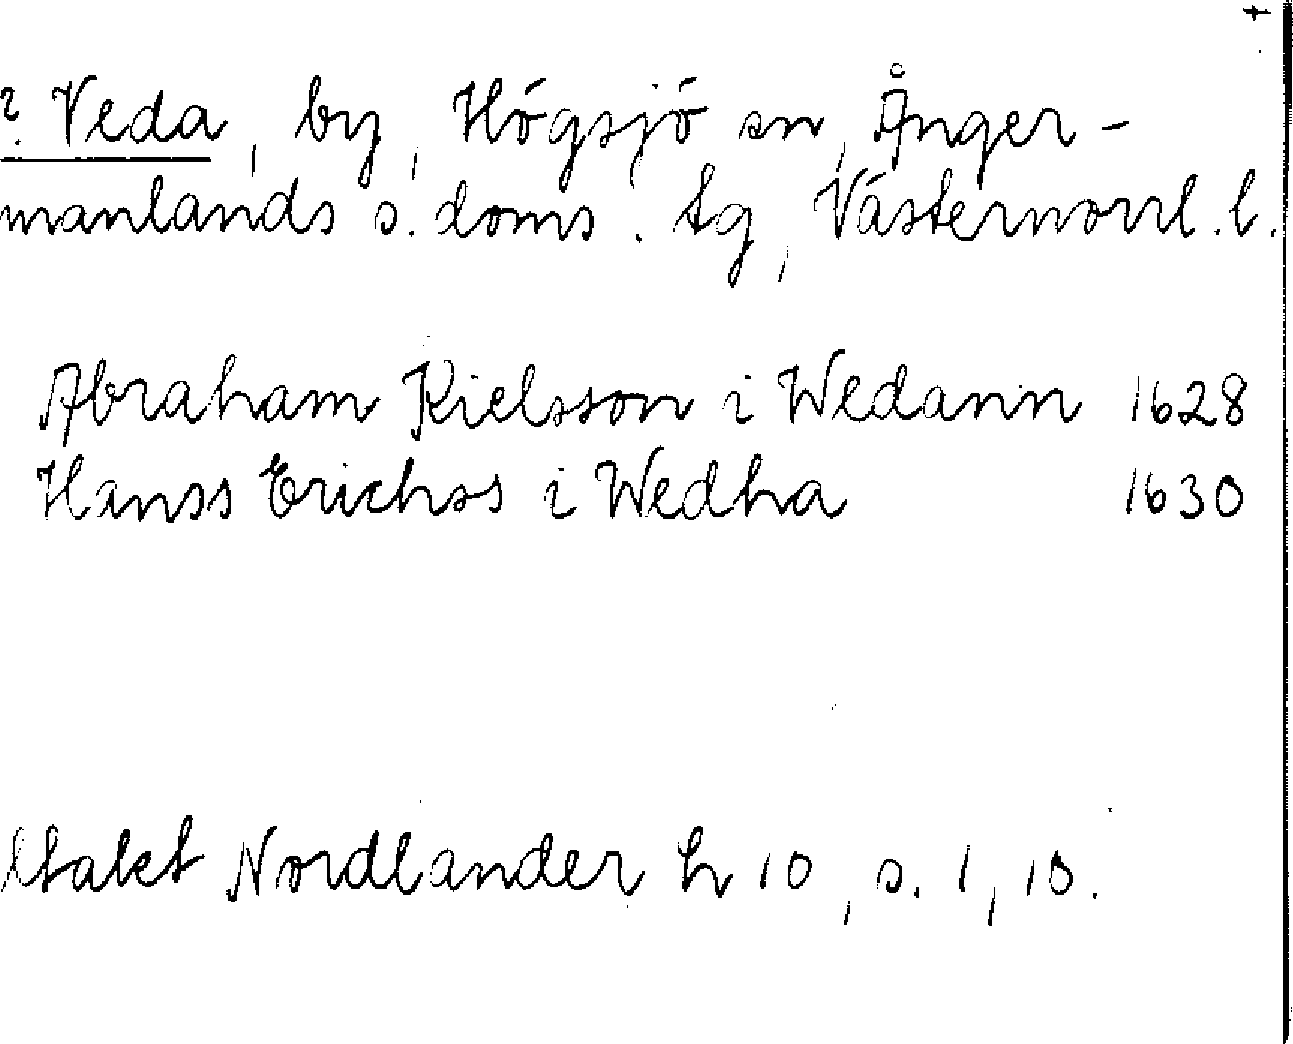 ? Veda, by, Högsjö sn, Ånger-
manlands s. doms. tg, Västernorrl. l.
Abraham Kielsson i Wedann 1628
Hanss Erichss i Wedha 1630
Utakt Nordlander h 10, s. 1, 10.